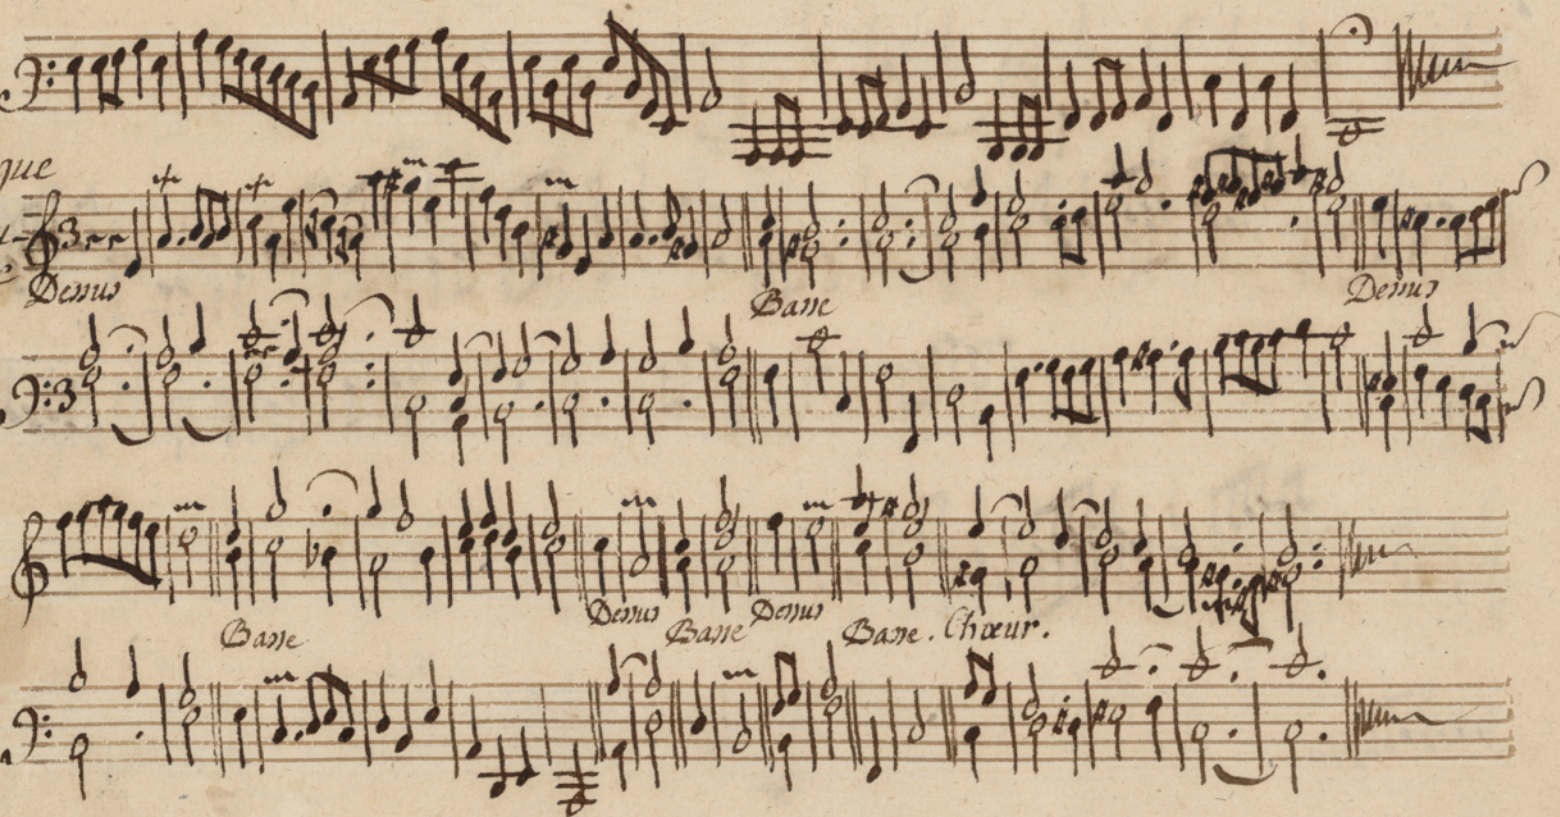 que
3
Dessus
Basse
Dessus
3
Basse
Dessus
Basse
Dessus
Basse. Chœur.